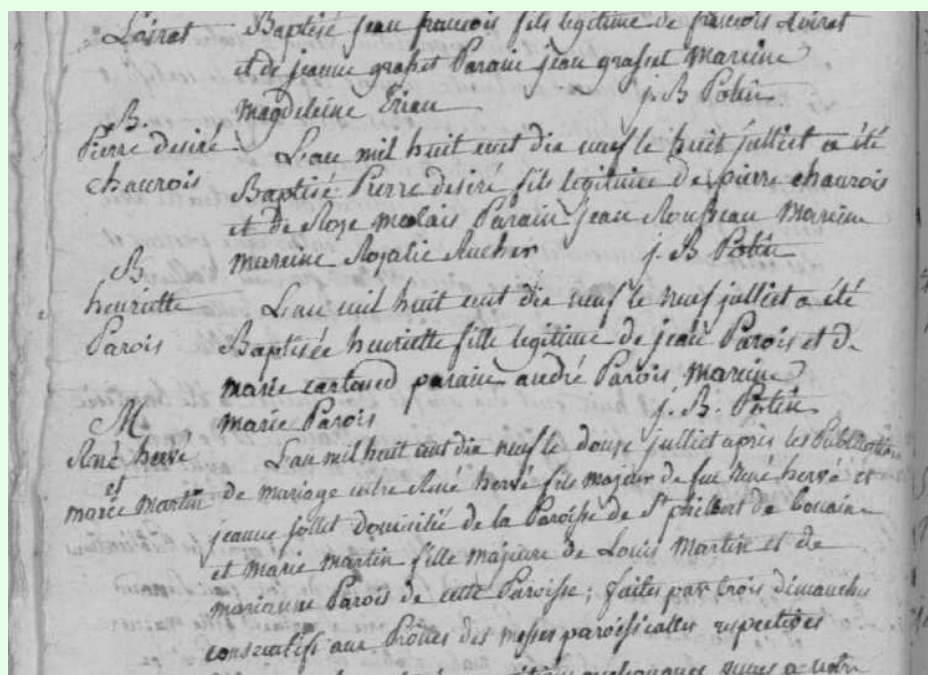 Loirat Baptisé jean francois fils legitime de francois Loirat
et de jeanne grasset Parain jean grasset mareine
magdeleine Erieau j. B Potin
B.
Pierre desiré L'an mil huit cent dix neuf le huit julliet a été
chaurois Baptisé Pierre desiré fils legitime de pierre chaurois
et de Roze Parain jean Rousseau Mareine
mareine Rozalie Rucher j. B Potin
B
henriette L'an mil huit cent dix neuf le neuf julliet a été
Parois Baptisée henriette fille legitime de jean Parois et de
marie parain andré Parois, mareine
marie Parois j. B. Potin
M
René hervé L'an mil huit cent dix neuf le douze julliet après les Publications
et
marie Martin de mariage entre René hervé fils majeur de feu René hervé et
jeanne jollet domicilié de la Paroisse de St philbert de Bouaine
et marie martin fille majeure de Louis Martin et de
marianne Parois de cette Paroisse ; faites par trois dimanches
consecutifs aux Prônes des messes paroissialles respectives